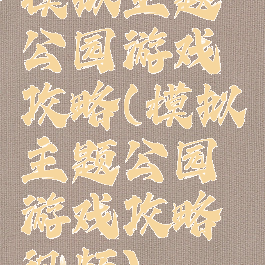 模拟主题
公园游戏
攻略(模拟
主题公园
游戏攻略
视频)